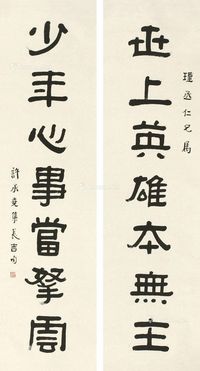 瑾丞仁兄屬
世上英雄本無主
少年心事當拏雲
許承堯集長吉句